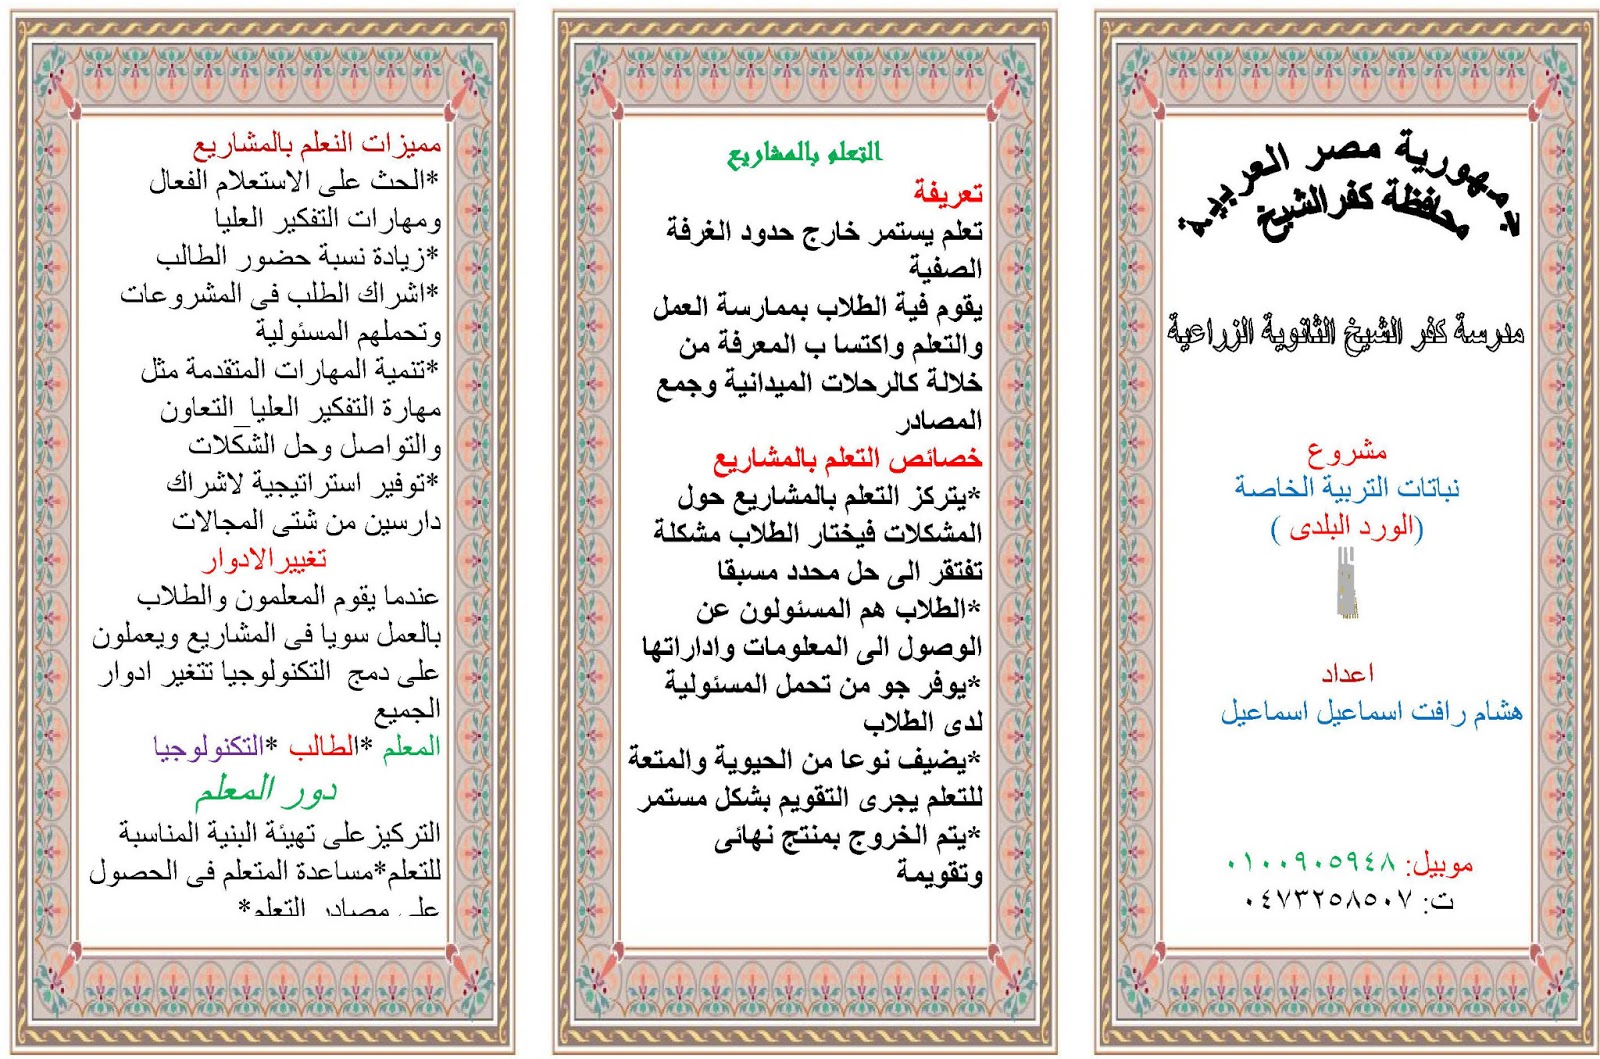 جمهورية مصر العربيية
محافظة كفرالشيخ
مدرسة كفر الشيخ الثانوية الزراعية
مشروع
نباتات التربية الخاصة
(الورد البلدى )
اعداد
هشام رافت اسماعيل اسماعيل
موبيل: ٠١٠٠٩٠٥٩٤٨
ت: ٠٤٧٣٢٥٨٥٠٧
التعلم بالمشاريع
تعريفة
تعلم يستمر خارج حدود الغرفة
الصفية
يقوم فية الطلاب بممارسة العمل
والتعلم واكتسا ب المعرفة من
خلالة كالرحلات الميدانية وجمع
المصادر
خصائص التعلم بالمشاريع
*يتركز التعلم بالمشاريع حول
المشكلات فيختار الطلاب مشكلة
تفتقر الى حل محدد مسبقا
*الطلاب هم المسئولون عن
الوصول الى المعلومات واداراتها
*يوفر جو من تحمل المسئولية
لدى الطلاب
*يضيف نوعا من الحيوية والمتعة
للتعلم يجرى التقويم بشكل مستمر
*يتم الخروج بمنتج نهائى
وتقويمة
مميزات التعلم بالمشاريع
*الحث على الاستعلام الفعال
ومهارات التفكير العليا
*زيادة نسبة حضور الطالب
*اشراك الطلب فى المشروعات
وتحملهم المسئولية
*تنمية المهارات المتقدمة مثل
مهارة التفكير العليا_التعاون
والتواصل وحل الشكلات
*توفير استراتيجية لاشراك
دارسين من شتى المجالات
تغييرالادوار
عندما يقوم المعلمون والطلاب
بالعمل سويا فى المشاريع ويعملون
على دمج التكنولوجيا تتغير ادوار
الجميع
المعلم *الطالب *التكنولوجيا
دور المعلم
التركيزعلى تهيئة البنية المناسبة
للتعلم*مساعدة المتعلم فى الحصول
على مصادر التعلم*